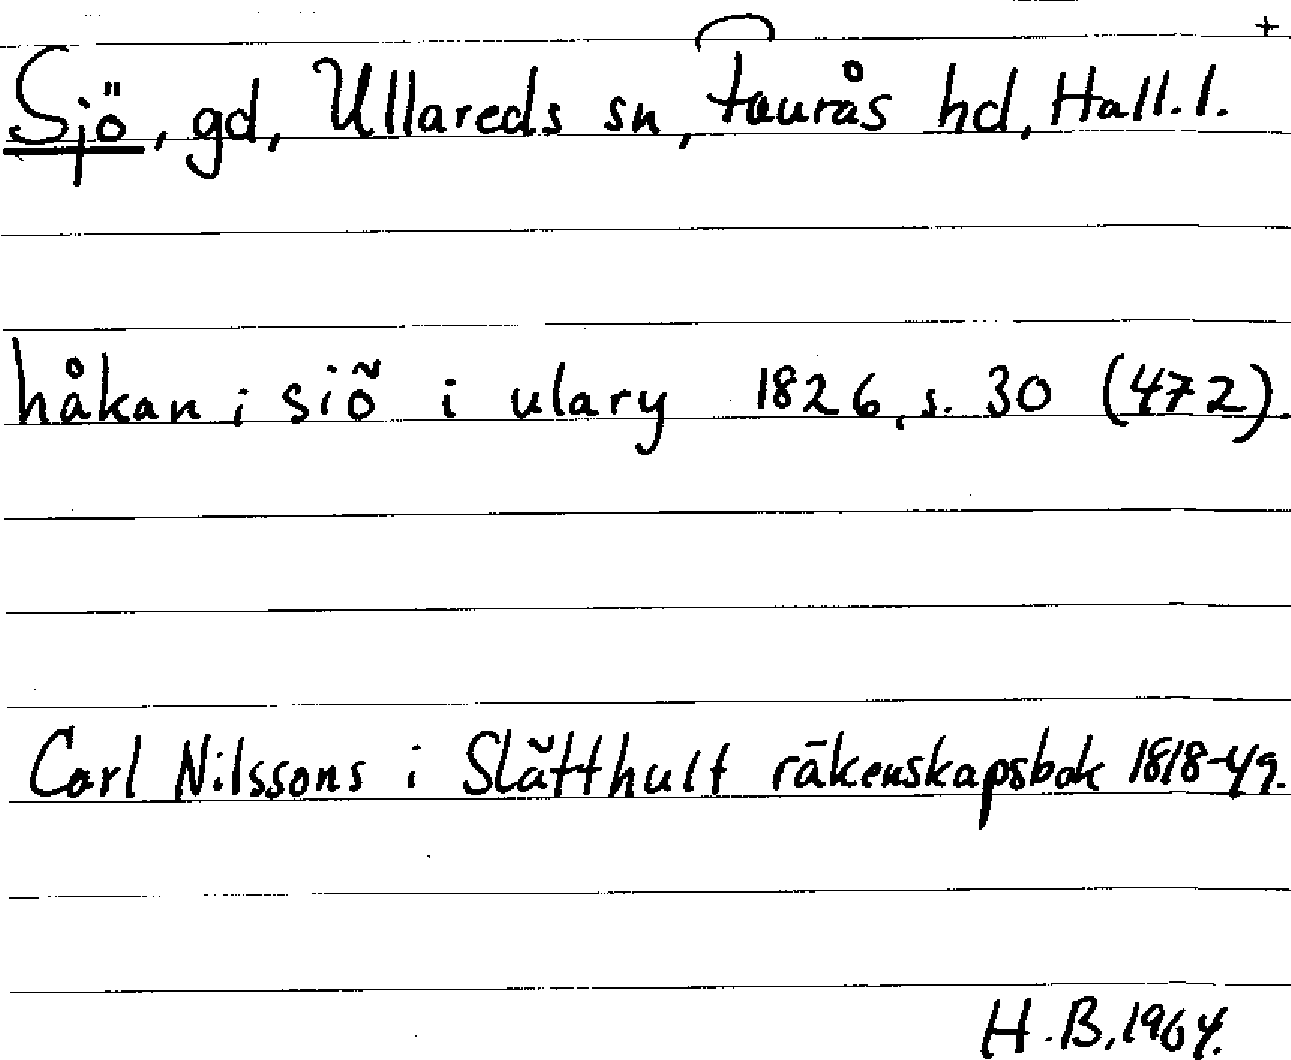 +
Sjö, gd, Ullareds sn, Faurås hd, Hall. l.
håkan i siö i ulary 1826, s. 30 (472).
Carl Nilssons i Slätthult räkenskapsbok 1818-49.
H.B, 1964.